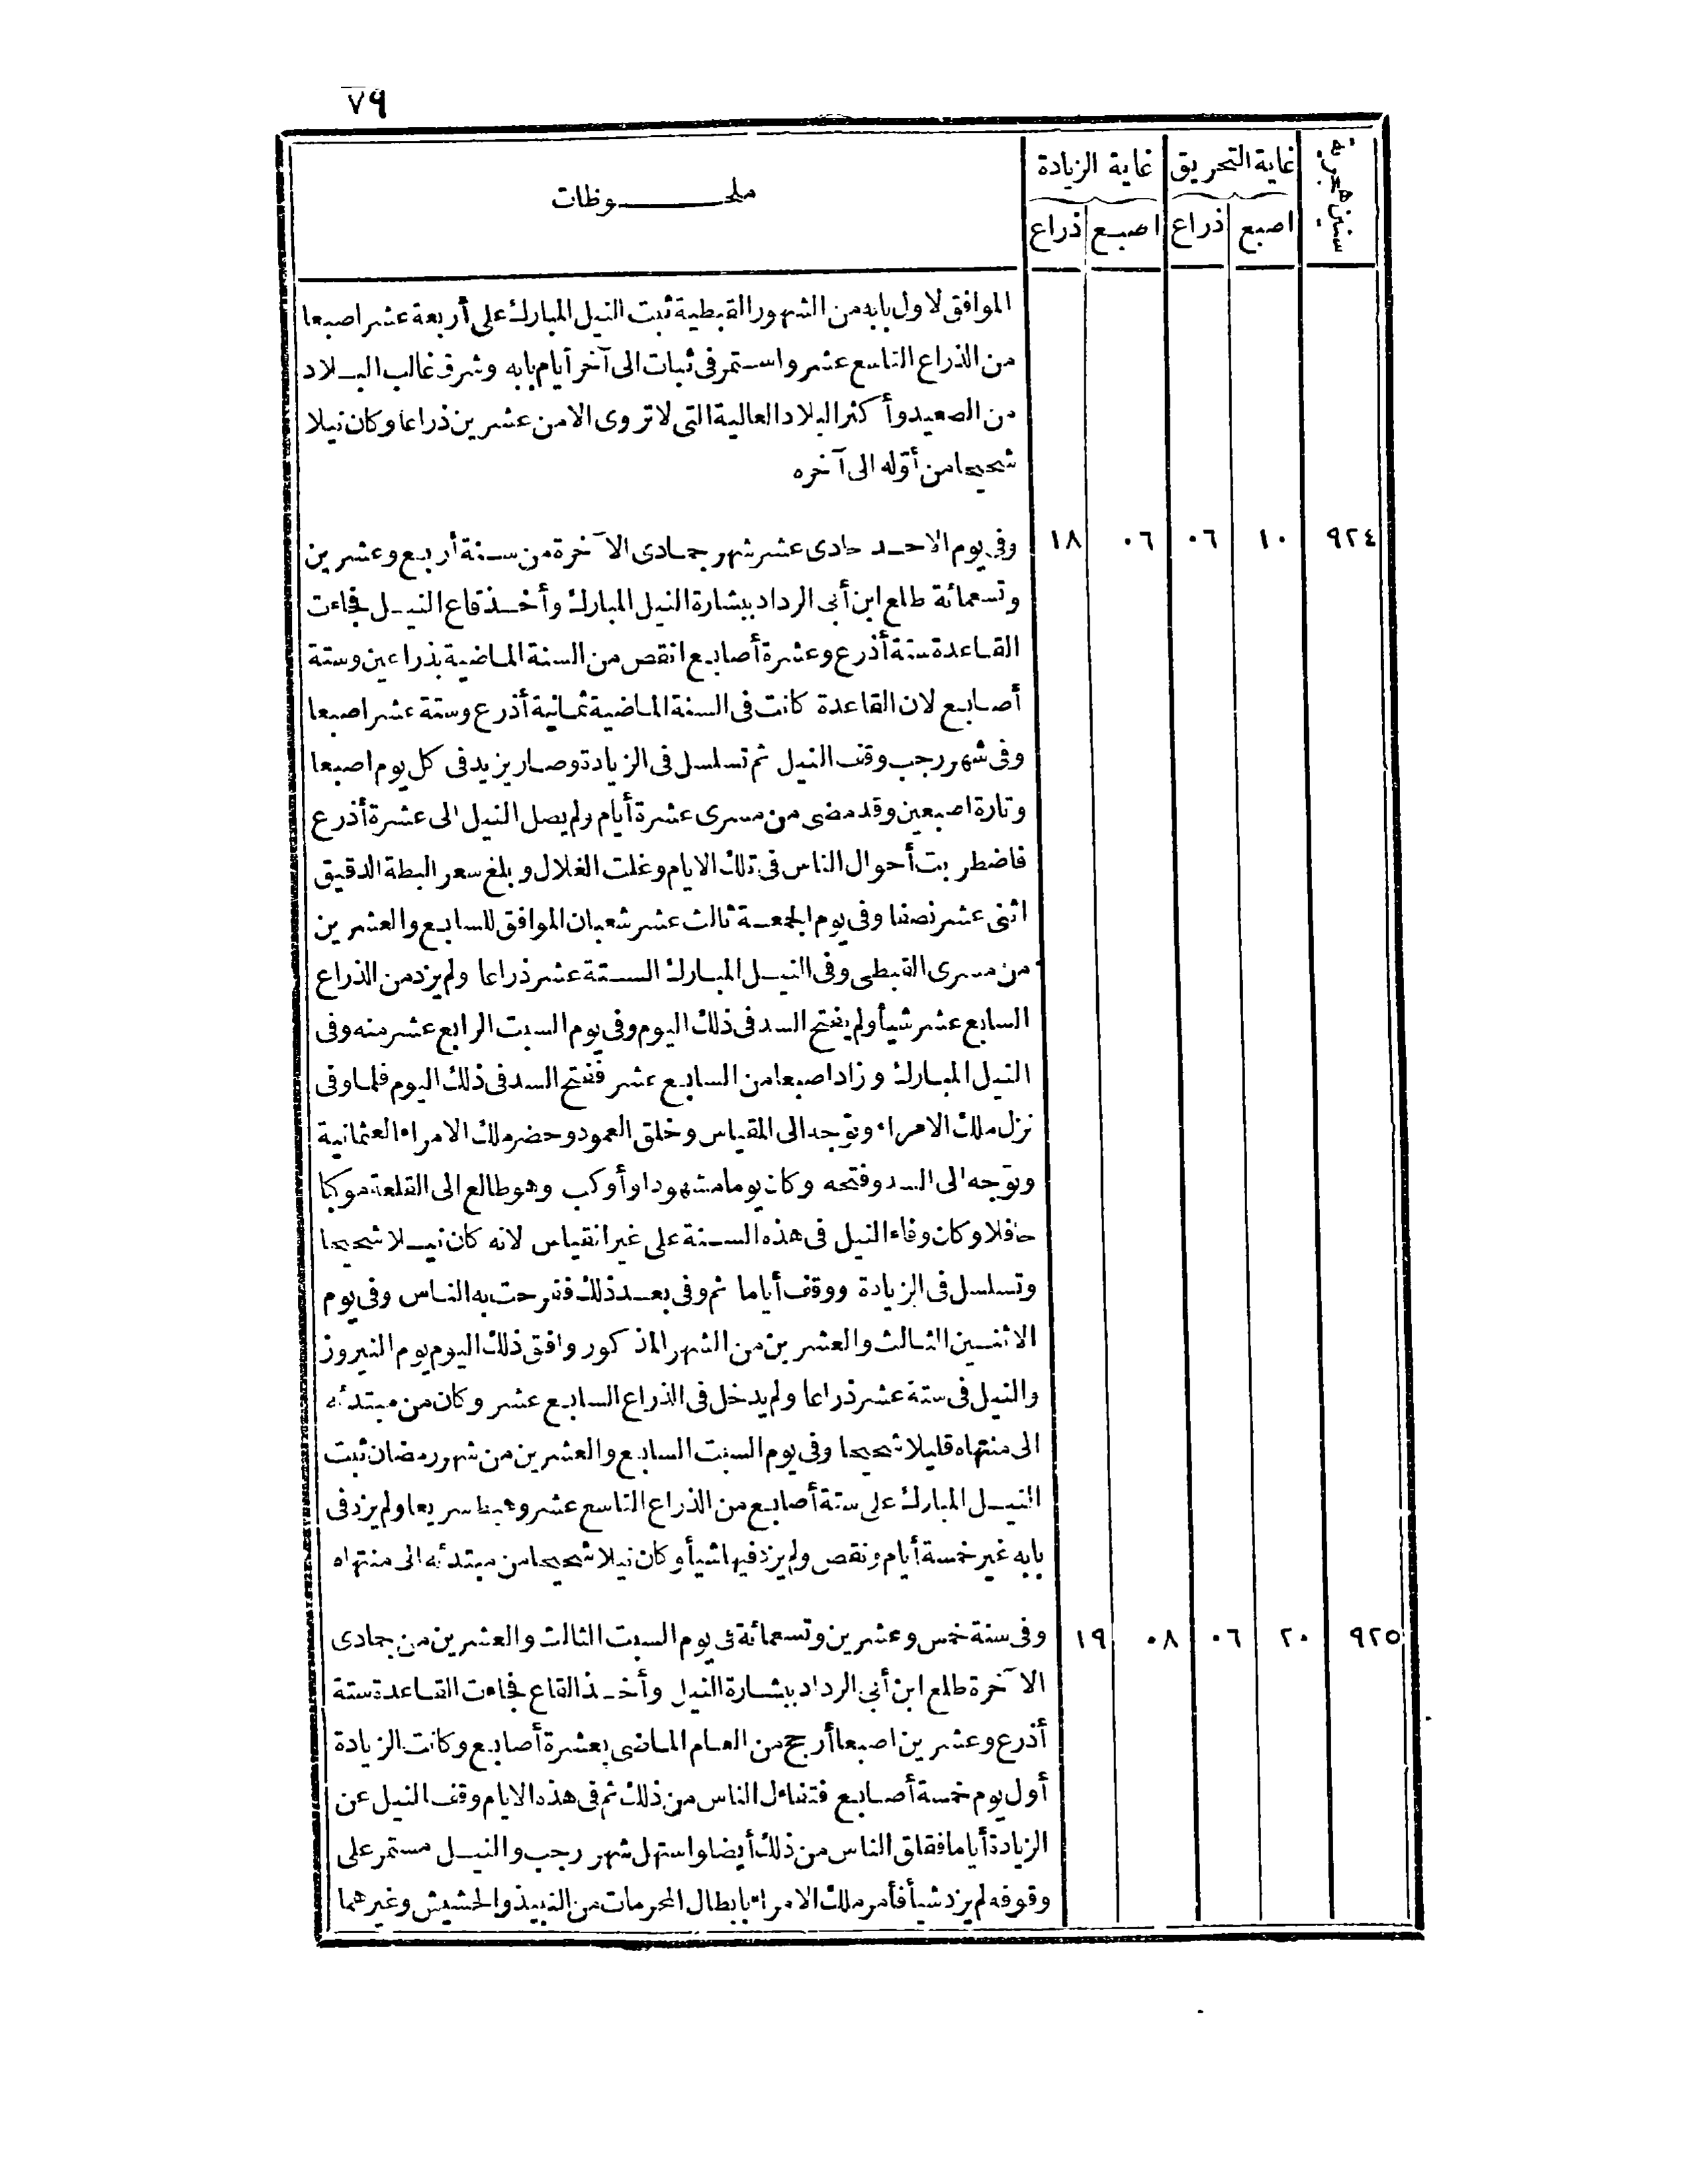 ٧٩
سنين هجرية
غاية التحريق
غاية الزيادة
ملحوظات
اصبع
ذراع
اصبع
ذراع
الموافق لاول بابه من الشهور القبطية ثبت النيل المبارك على أربعة عشر اصبعا
من الذراع التاسع عشر واستمر فى ثبات الى آخر أيام بابه وشرق غالب البلاد
من الصعيد وأكثر البلاد العالية التى لا تروى الا من عشرين ذراعا وكان نيلا
شحيحا من أوّله الى آخره
٩٢٤ ١٠ ٠٦ ٠٦ ١٨
وفى يوم الاحد حادى عشر شهر جمادى الآخرة من سنة أربع وعشرين
وتسعمائة طلع ابن أبى الرداد ببشارة النيل المبارك وأخذ قاع النيل فجاءت
القاعدة ستة أذرع وعشرة أصابع انقص من السنة الماضية بذراعين وستة
أصابع لان القاعدة كانت فى السنة الماضية ثمانية أذرع وستة عشر اصبعا
وفى شهر رجب وقف النيل ثم تسلسل فى الزيادة وصار يزيد فى كل يوم اصبعا
وتارة اصبعين وقد مضى من مسرى عشرة أيام ولم يصل النيل الى عشرة أذرع
فاضطربت أحوال الناس فى تلك الايام وغلت الغلال وبلغ سعر البطة الدقيق
اثنى عشر نصفا وفى يوم الجمعة ثالث عشر شعبان الموافق للسابع والعشرين
من مسرى القبطى وفى النيل المبارك الستة عشر ذراعا ولم يزد من الذراع
السابع عشر شيأ ولم يفتح السد فى ذلك اليوم وفى يوم السبت الرابع عشر منه وفى
النيل المبارك وزاد اصبعا من السابع عشر ففتح السد فى ذلك اليوم فلما وفى
نزل ملك الامراء وتوّجه الى المقياس وخلق العمود وحضر ملك الامراء العثمانية
وتوّجه الى السد وفتحه وكان يوما مشهودا وأوكب وهو طالع الى القلعة موكبا
حافلا وكان وفاء النيل فى هذه السنة على غير انقياس لانه كان نيلا شحيحا
وتسلسل فى الزيادة ووقف أياما ثم وفى بعد ذلك ففرحت به الناس وفى يوم
الاثنين الثالث والعشرين من الشهر المذكور وافق ذلك اليوم يوم النيروز
والنيل فى ستة عشر ذراعا ولم يدخل فى الذراع السابع عشر وكان من مبتدئه
الى منتهاه قليلا شحيحا وفى يوم السبت السابع والعشرين من شهر رمضان ثبت
النيل المبارك على ستة أصابع من الذراع التاسع عشر وهبط سريعا ولم يزد فى
بابه غير خمسة أيام ونقص ولم يزد فيها شيأ وكان نيلا شحيحا من مبتدئه الى منتهاه
٩٢٥ ٢٠ ٠٦ ٠٨ ١٩
وفى سنة خمس وعشرين وتسعمائة فى يوم السبت الثالث والعشرين من جمادى
الآخرة طلع ابن أبى الرداد ببشارة النيل وأخذ القاع فجاءت القاعدة ستة
أذرع وعشرين اصبعا أرجح من العام الماضى بعشرة أصابع وكانت الزيادة
أول يوم خمسة أصابع فتفاءل الناس من ذلك ثم فى هذه الايام وقف النيل عن
الزيادة أياما فقلق الناس من ذلك أيضا واستهل شهر رجب والنيل مستمر على
وقوفه لم يزد شيأ فأمر ملك الامراء بابطال المحرمات من النبيذ والحشيش وغيرهما